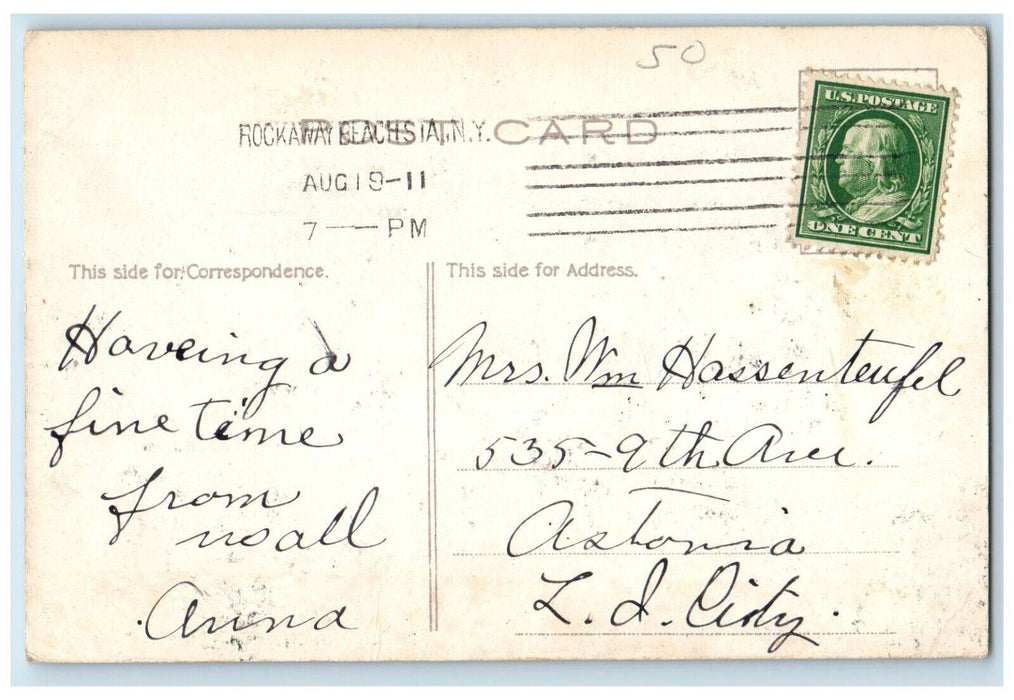 50
POST CARD
ROCKAWAY BEACH STA., N.Y.
AUG 19-11
7 — PM
U.S. POSTAGE
ONE CENT
This side for Correspondence.
This side for Address.
Haveing a
fine time
from
us all
Anna
Mrs. Wm Hassenteufel
535-9th Ave.
Astoria
L. I. City.